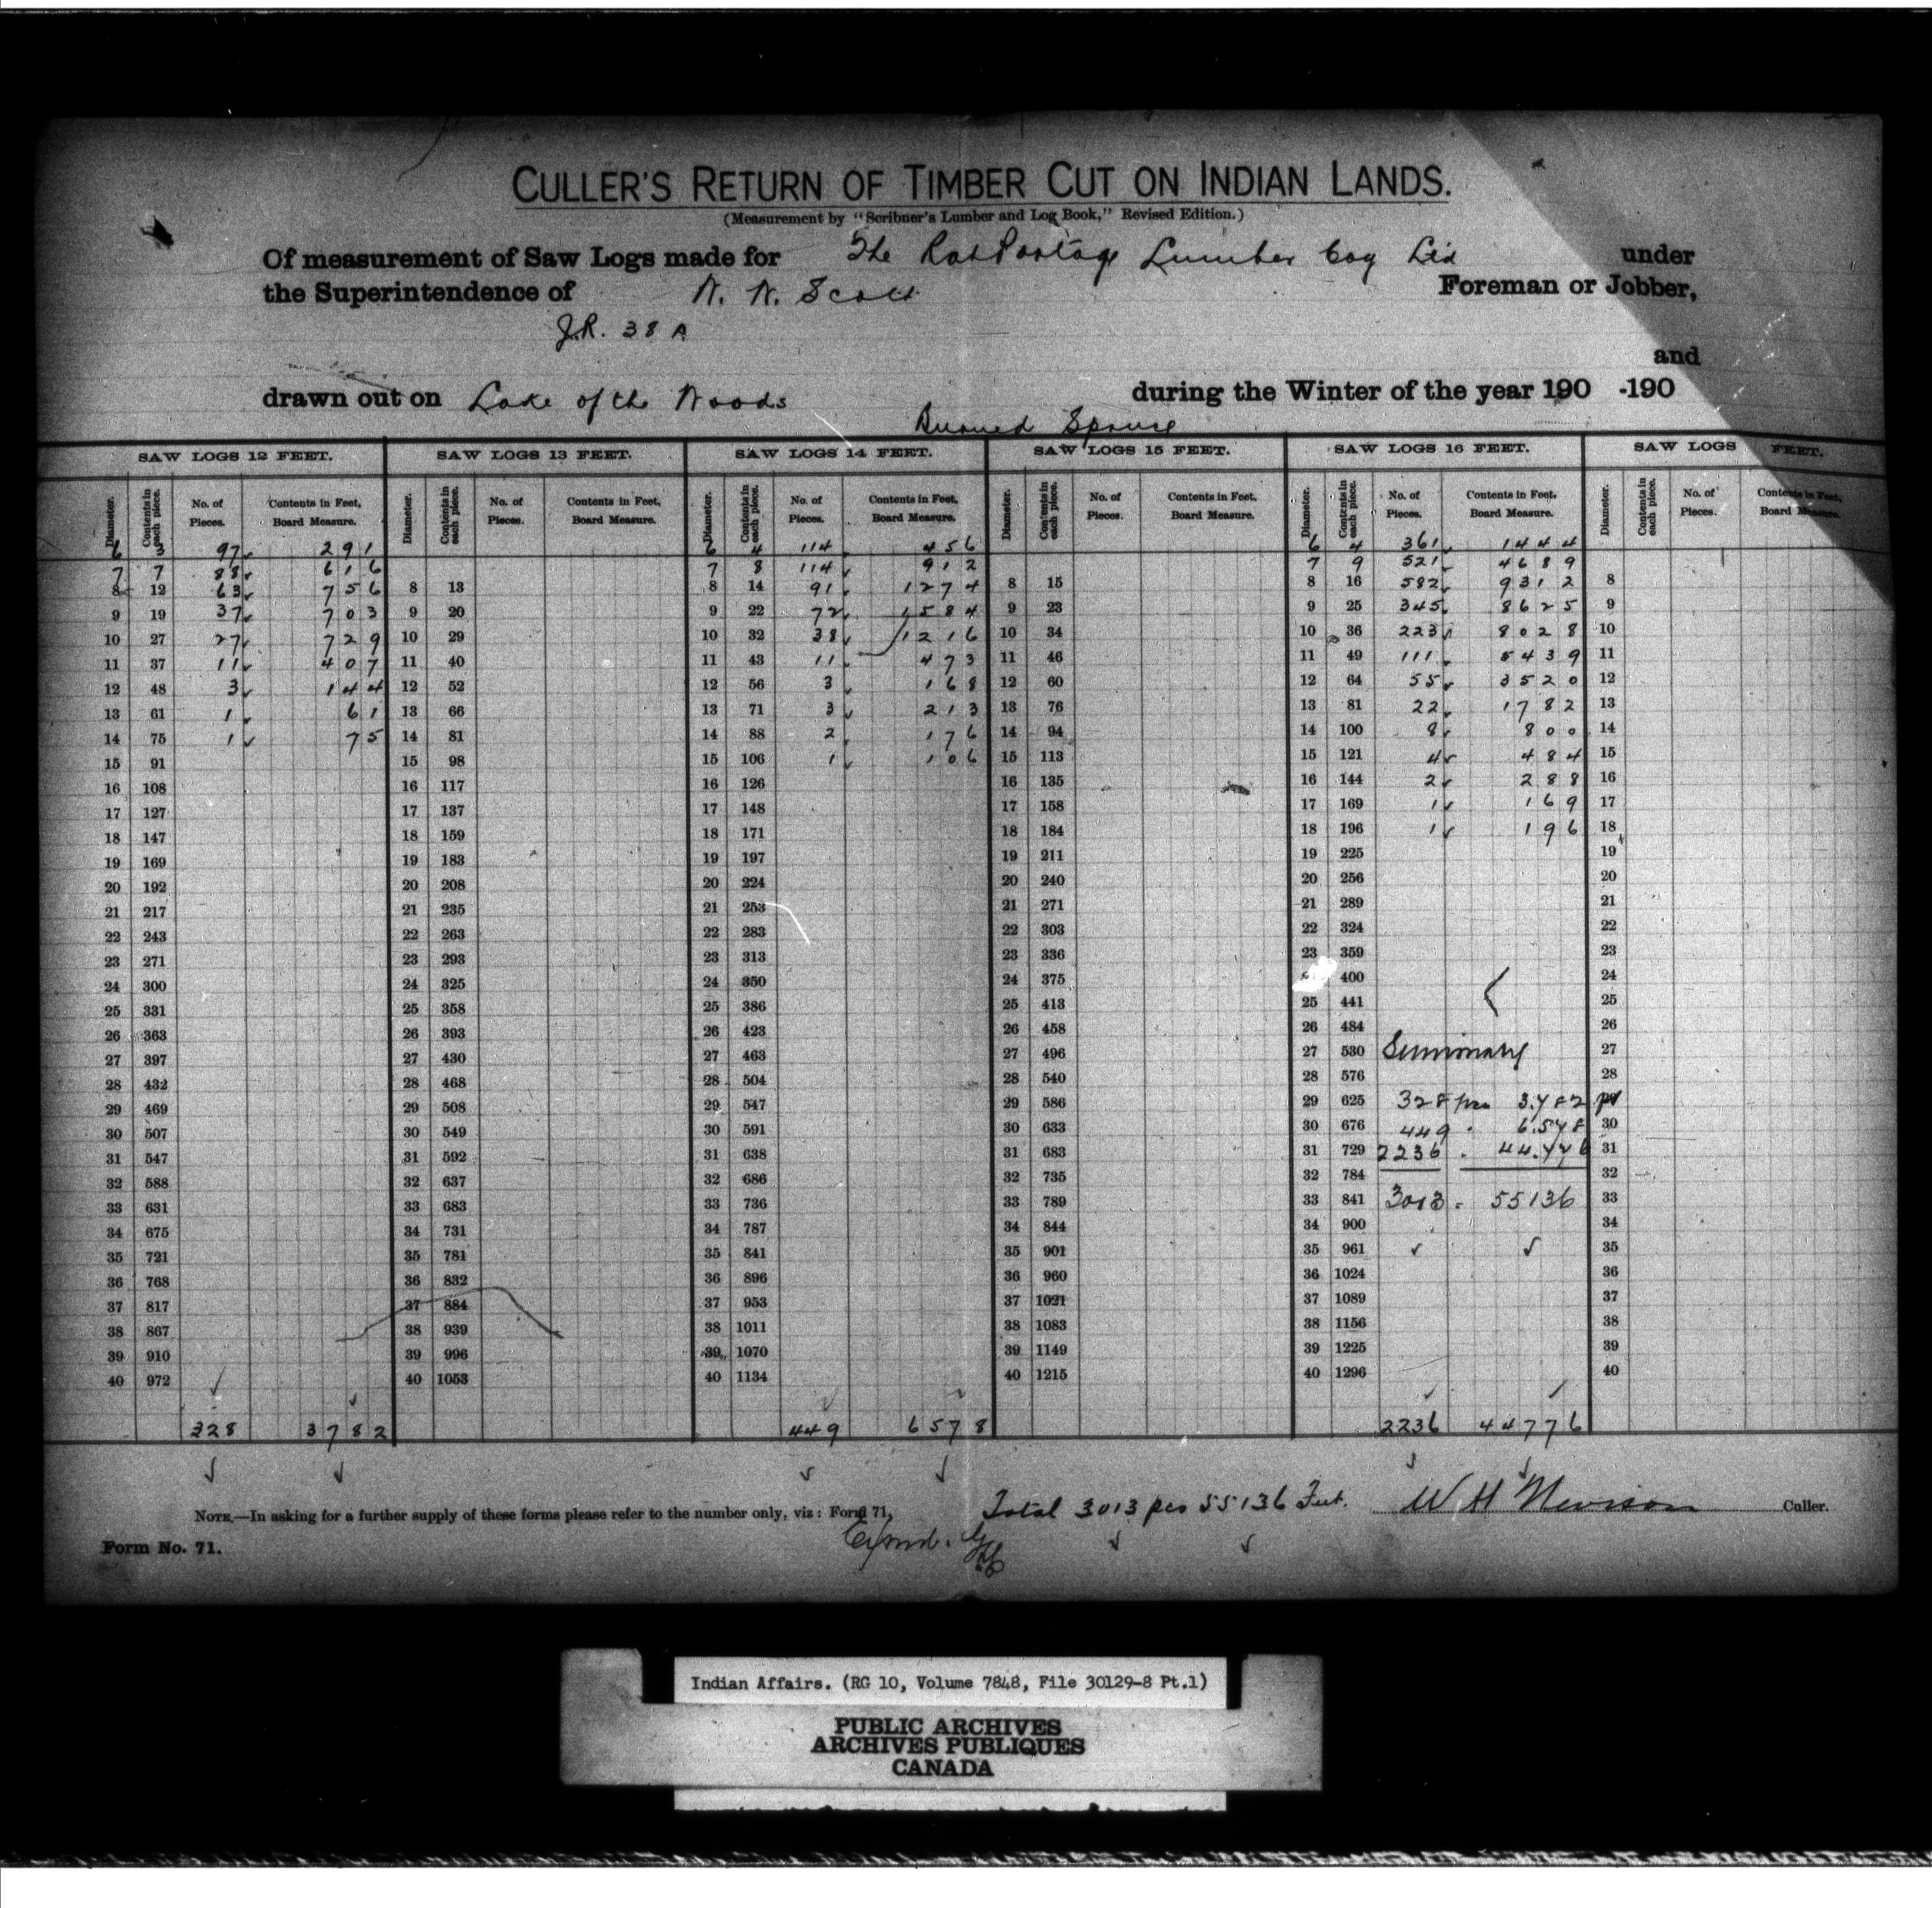 CULLER'S RETURN OF TIMBER CUT ON INDIAN LANDS.
(Measurement by "Scribner's Lumber and Log Book," Revised Edition.)
Of measurement of Saw Logs made for The Rat Portage Lumber Coy Ltd under
the Superintendence of N. N. Scott Foreman or Jobber,
J.R. 38 A
and
drawn out on Lake of the Woods during the Winter of the year 190 -190
Burned Spruce
SAW LOGS 12 FEET. SAW LOGS 13 FEET. SAW LOGS 14 FEET. SAW LOGS 15 FEET. SAW LOGS 16 FEET. SAW LOGS FEET.
Diameter. Contents in each piece. No. of Pieces. Contents in Feet, Board Measure. Diameter. Contents in each piece. No. of Pieces. Contents in Feet, Board Measure. Diameter. Contents in each piece. No. of Pieces. Contents in Feet, Board Measure. Diameter. Contents in each piece. No. of Pieces. Contents in Feet, Board Measure. Diameter. Contents in each piece. No. of Pieces. Contents in Feet, Board Measure. Diameter. Contents in each piece. No. of Pieces. Contents in Feet, Board Measure.
6 3 97 291 6 4 114 456 6 4 361 1444
7 7 88 616 7 8 114 912 7 9 521 4689
8 12 63 756 8 13 8 14 91 1274 8 15 8 16 582 9312 8
9 19 37 703 9 20 9 22 72 1584 9 23 9 25 345 8625 9
10 27 27 729 10 29 10 32 38 1216 10 34 10 36 223 8028 10
11 37 11 407 11 40 11 43 11 473 11 46 11 49 111 5439 11
12 48 3 144 12 52 12 56 3 168 12 60 12 64 55 3520 12
13 61 1 61 13 66 13 71 3 213 13 76 13 81 22 1782 13
14 75 1 75 14 81 14 88 2 176 14 94 14 100 8 800 14
15 91 15 98 15 106 1 106 15 113 15 121 4 484 15
16 108 16 117 16 126 16 135 16 144 2 288 16
17 127 17 137 17 148 17 158 17 169 1 169 17
18 147 18 159 18 171 18 184 18 196 1 196 18
19 169 19 183 19 197 19 211 19 225 19
20 192 20 208 20 224 20 240 20 256 20
21 217 21 235 21 253 21 271 21 289 21
22 243 22 263 22 283 22 303 22 324 22
23 271 23 293 23 313 23 336 23 359 23
24 300 24 325 24 350 24 375 400 24
25 331 25 358 25 386 25 413 25 441 25
26 363 26 393 26 423 26 458 26 484 26
27 397 27 430 27 463 27 496 27 530 Summary 27
28 432 28 468 28 504 28 540 28 576 28
29 469 29 508 29 547 29 586 29 625 328 pcs 3.782
30 507 30 549 30 591 30 633 30 676 449 " 6.578 30
31 547 31 592 31 638 31 683 31 729 2236 " 44.776 31
32 588 32 637 32 686 32 735 32 784 32
33 631 33 683 33 736 33 789 33 841 3013 " 55136 33
34 675 34 731 34 787 34 844 34 900 34
35 721 35 781 35 841 35 901 35 961 35
36 768 36 832 36 896 36 960 36 1024 36
37 817 37 884 37 953 37 1021 37 1089 37
38 867 38 939 38 1011 38 1083 38 1156 38
39 910 39 996 39 1070 39 1149 39 1225 39
40 972 40 1053 40 1134 40 1215 40 1296 40
328 3782 449 6578 2236 44776
NOTE.—In asking for a further supply of these forms please refer to the number only, viz: Form 71, Total 3013 pcs 55136 Feet. W H Nevison Culler.
Form No. 71.
Indian Affairs. (RG 10, Volume 7848, File 30129-8 Pt.1)
PUBLIC ARCHIVES
ARCHIVES PUBLIQUES
CANADA